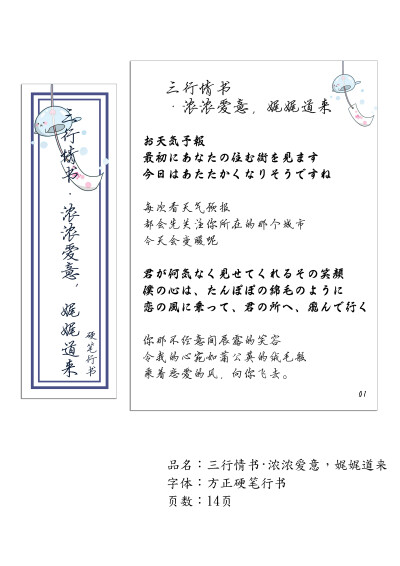 三行情书·浓浓爱意，娓娓道来
硬笔行书
三行情书
·浓浓爱意，娓娓道来
お天気予報
最初にあなたの住む街を見ます
今日はあたたかくなりそうですね
每次看天气预报
都会先关注你所在的那个城市
今天会变暖呢
君が何気なく見せてくれるその笑顔
僕の心は、たんぽぽの綿毛のように
恋の風に乗って、君の所へ、飛んで行く
你那不经意间展露的笑容
令我的心宛如蒲公英的绒毛般
乘着恋爱的风，向你飞去。
01
品名：三行情书·浓浓爱意，娓娓道来
字体：方正硬笔行书
页数：14页